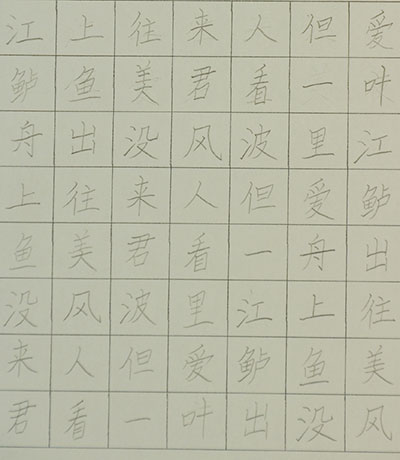 江上往来人但爱
鲈鱼美君看一叶
舟出没风波里江
上往来人但爱鲈
鱼美君看一舟出
没风波里江上往
来人但爱鲈鱼美
君看一叶出没风